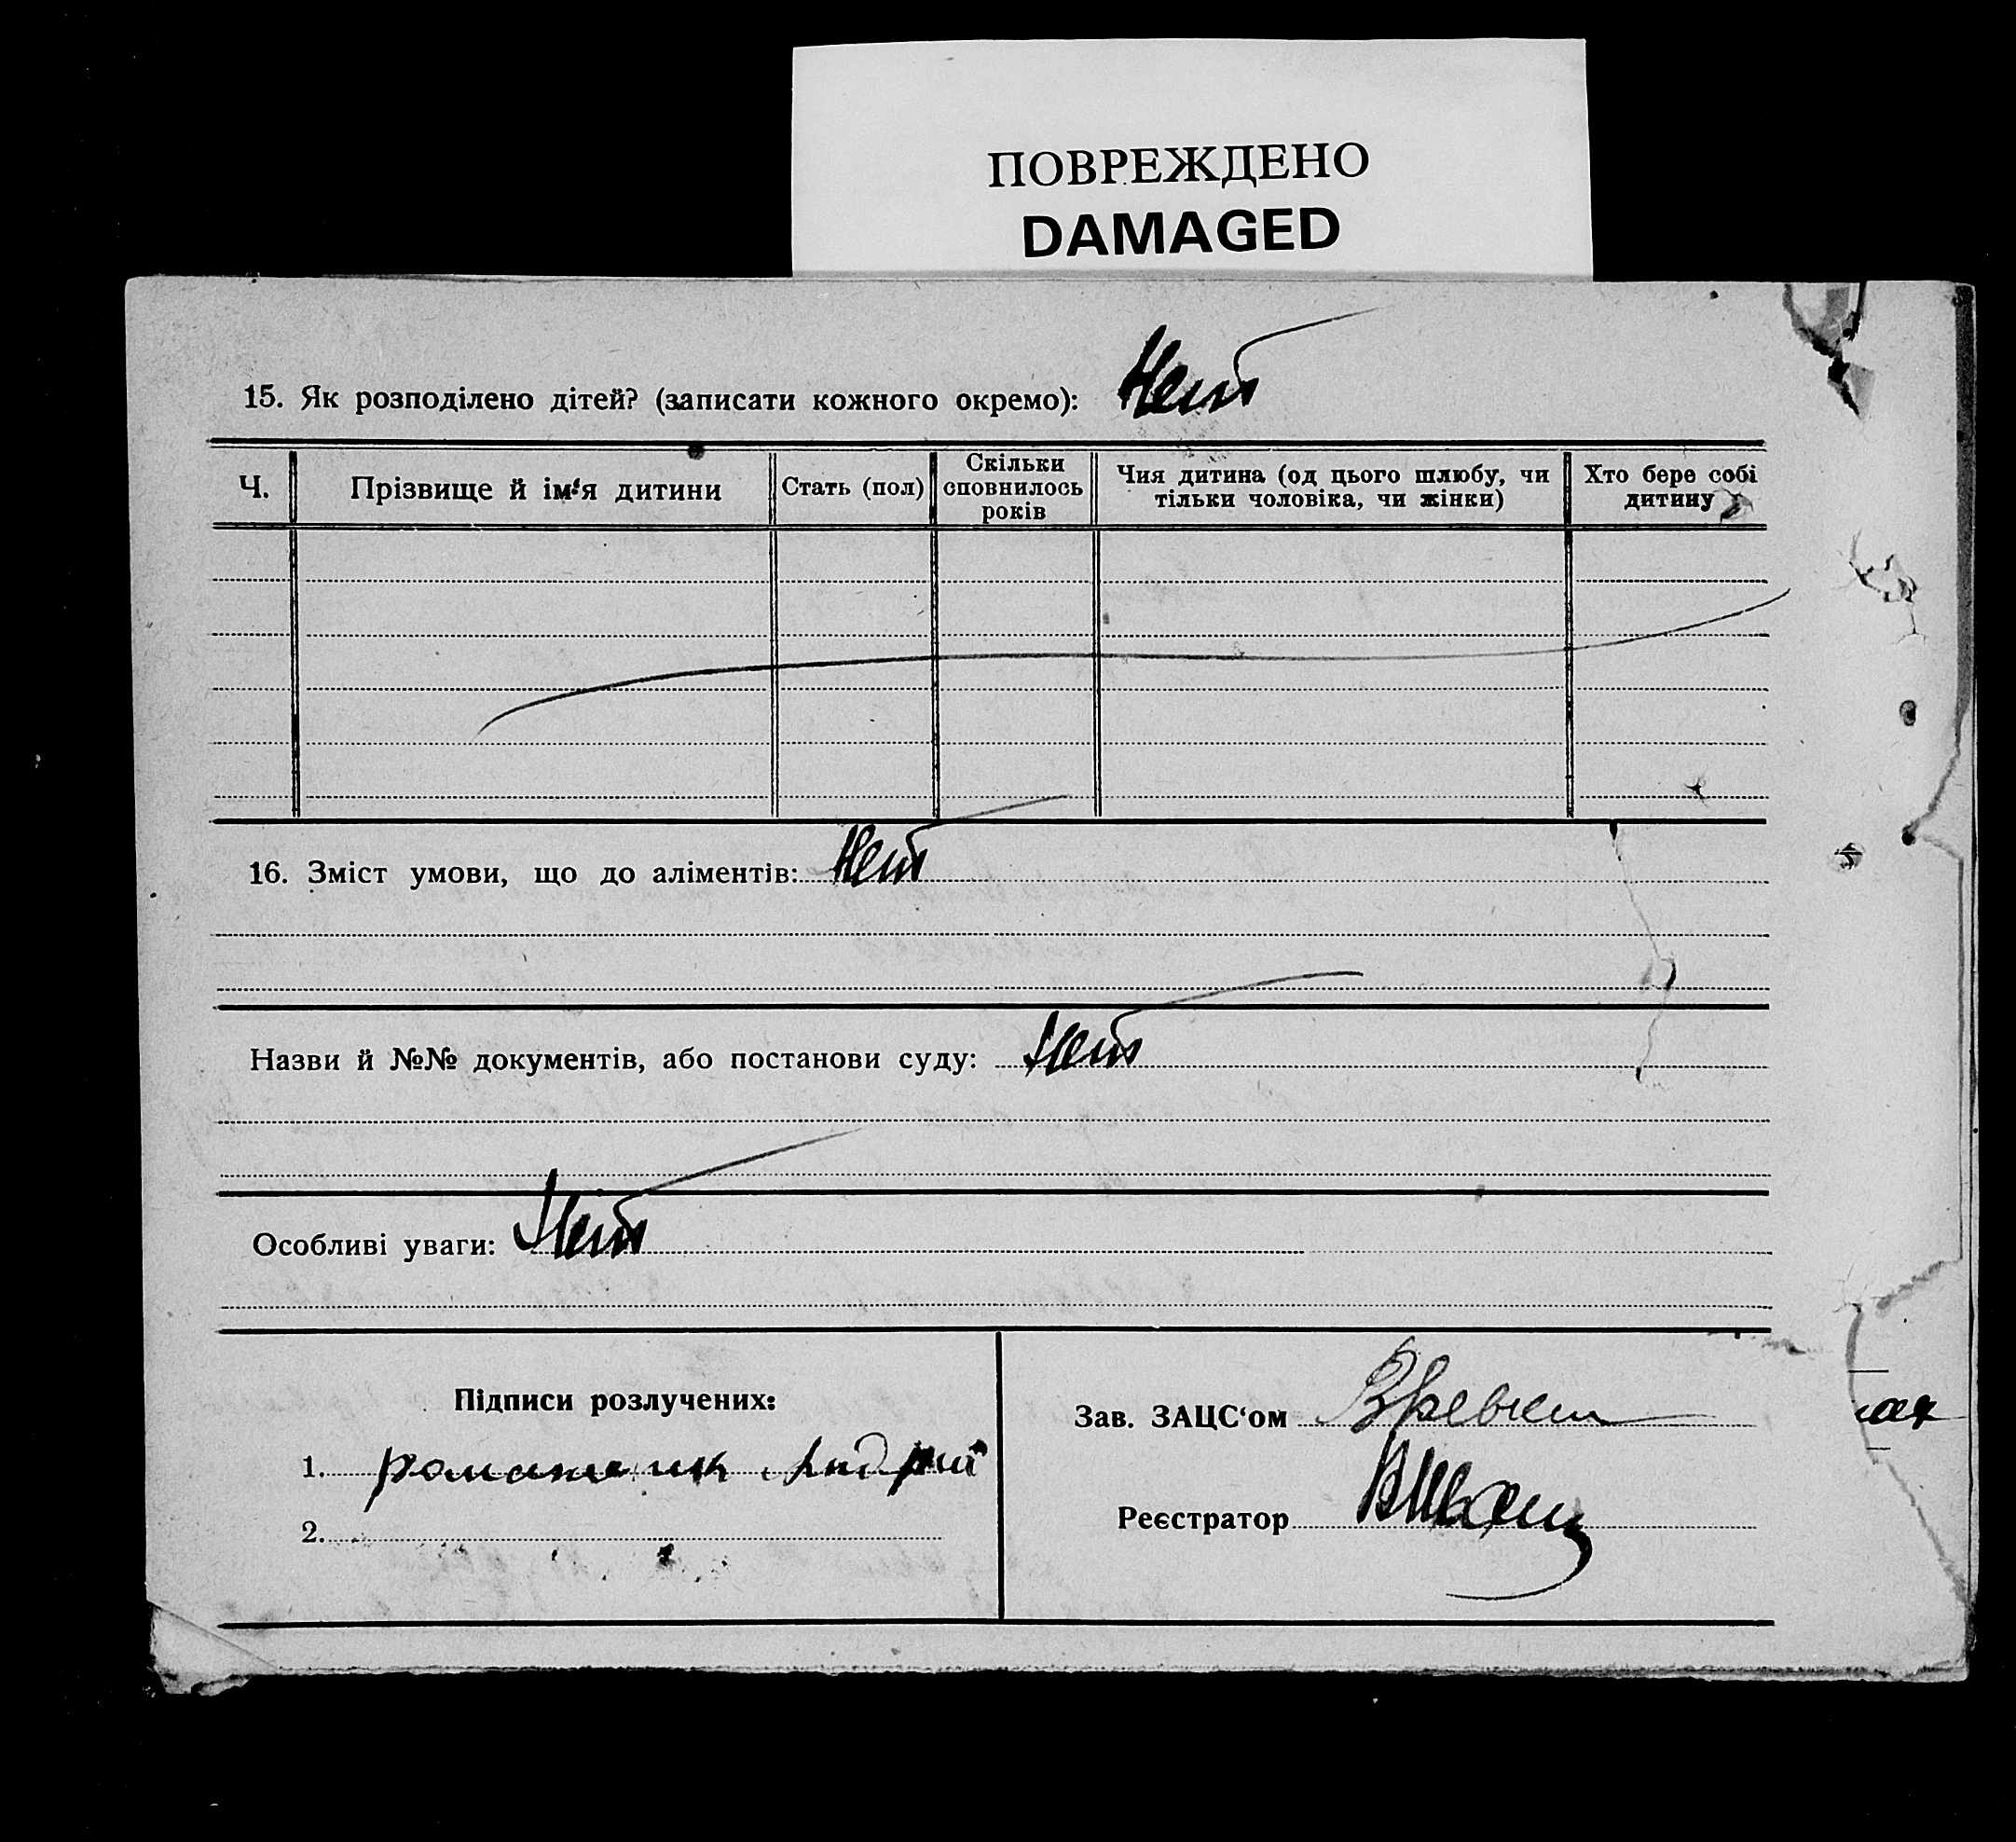 ПОВРЕЖДЕНО
DAMAGED
15. Як розподілено дітей? (записати кожного окремо): Нет
Ч.
Прізвище й ім'я дитини
Стать (пол)
Скільки
сповнилось
років
Чия дитина (од цього шлюбу, чи
тільки чоловіка, чи жінки)
Хто бере собі
дитину
16. Зміст умови, що до аліментів: Нет
Назви й №№ документів, або постанови суду: Нет
Особливі уваги: Нет
Підписи розлучених:
1.
2.
Зав. ЗАЦС‘ом
Реєстратор